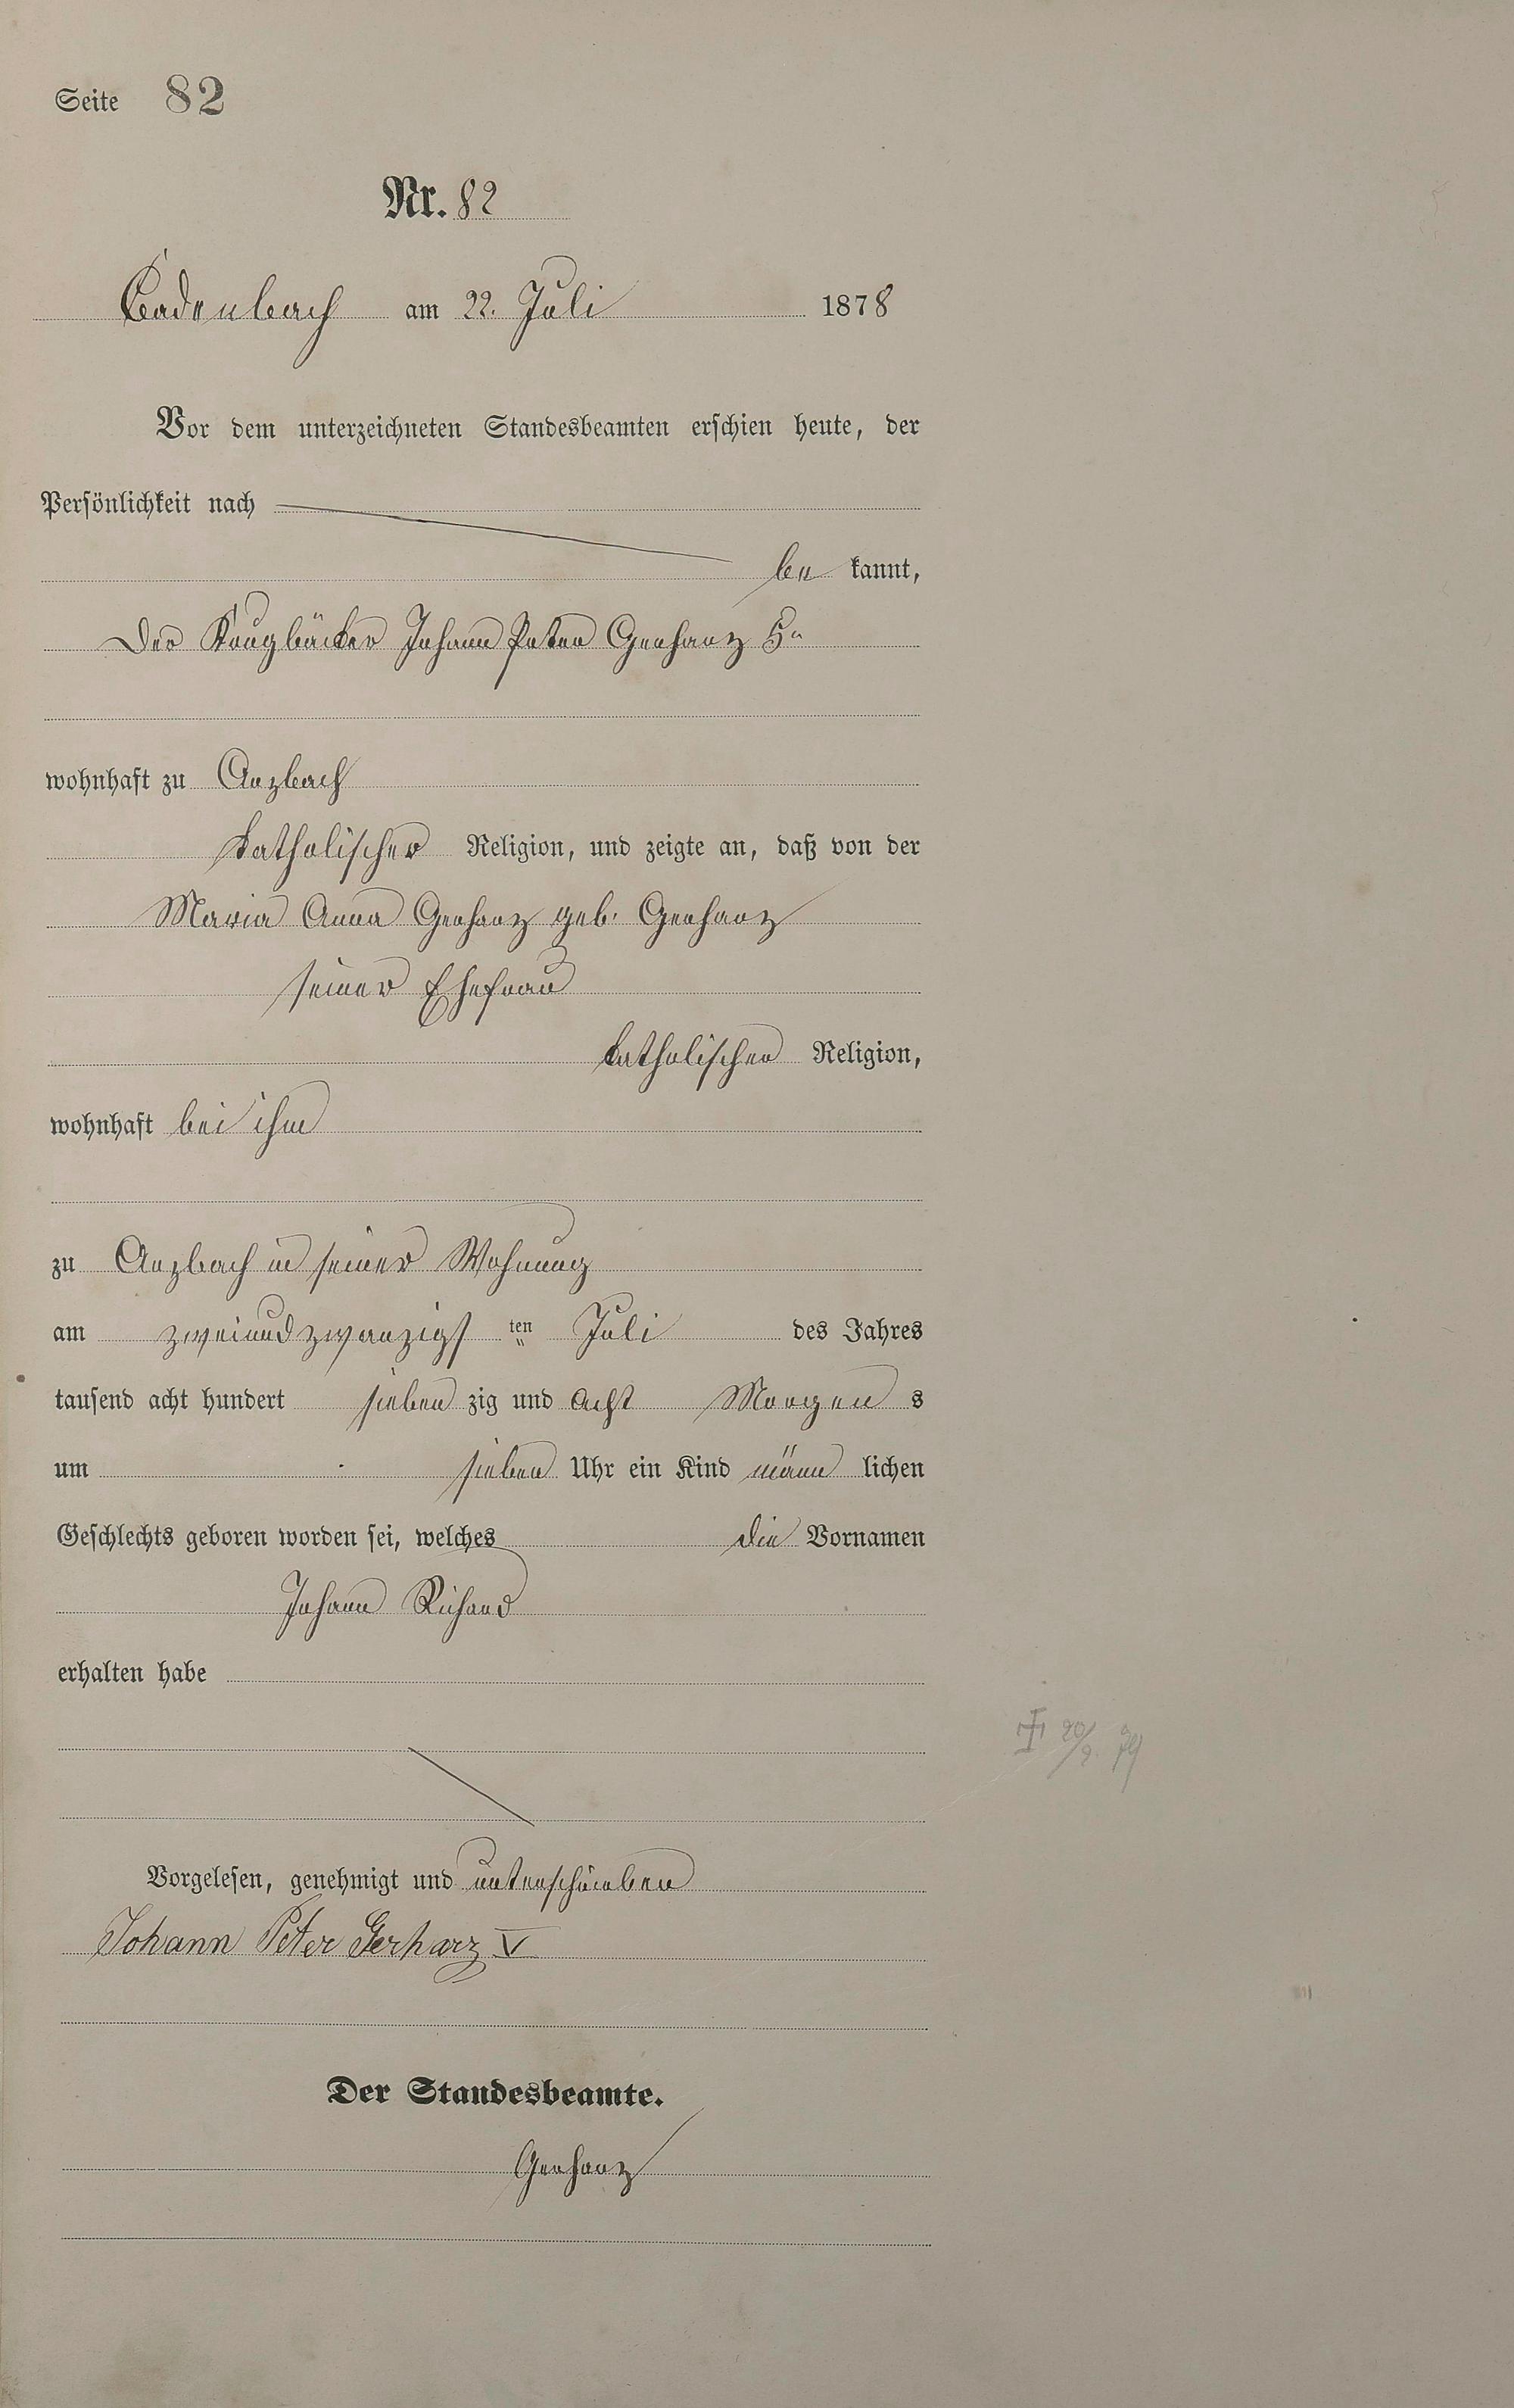 Seite 82
Nr. 82
Badenbach am 22. Juli 1878
Vor dem unterzeichneten Standesbeamten erschien heute, der
Persönlichkeit nach
be kannt,
Der Krugbäcker Johann Peter Gerharz 5r
wohnhaft zu Arzbach
katholischer Religion, und zeigte an, daß von der
Maria Anna Gerharz geb. Gerharz
seiner Ehefrau
katholischer Religion,
wohnhaft bei ihm
zu Arzbach in seiner Wohnung
am zweiundzwanzigs ten Juli des Jahres
tausend acht hundert sieben zig und acht Morgen s
um sieben Uhr ein Kind männ lichen
Geschlechts geboren worden sei, welches die Vornamen
Johann Richard
erhalten habe
20/9. 79
Vorgelesen, genehmigt und unterschrieben
Johann Peter Gerharz V
Der Standesbeamte.
Gerharz